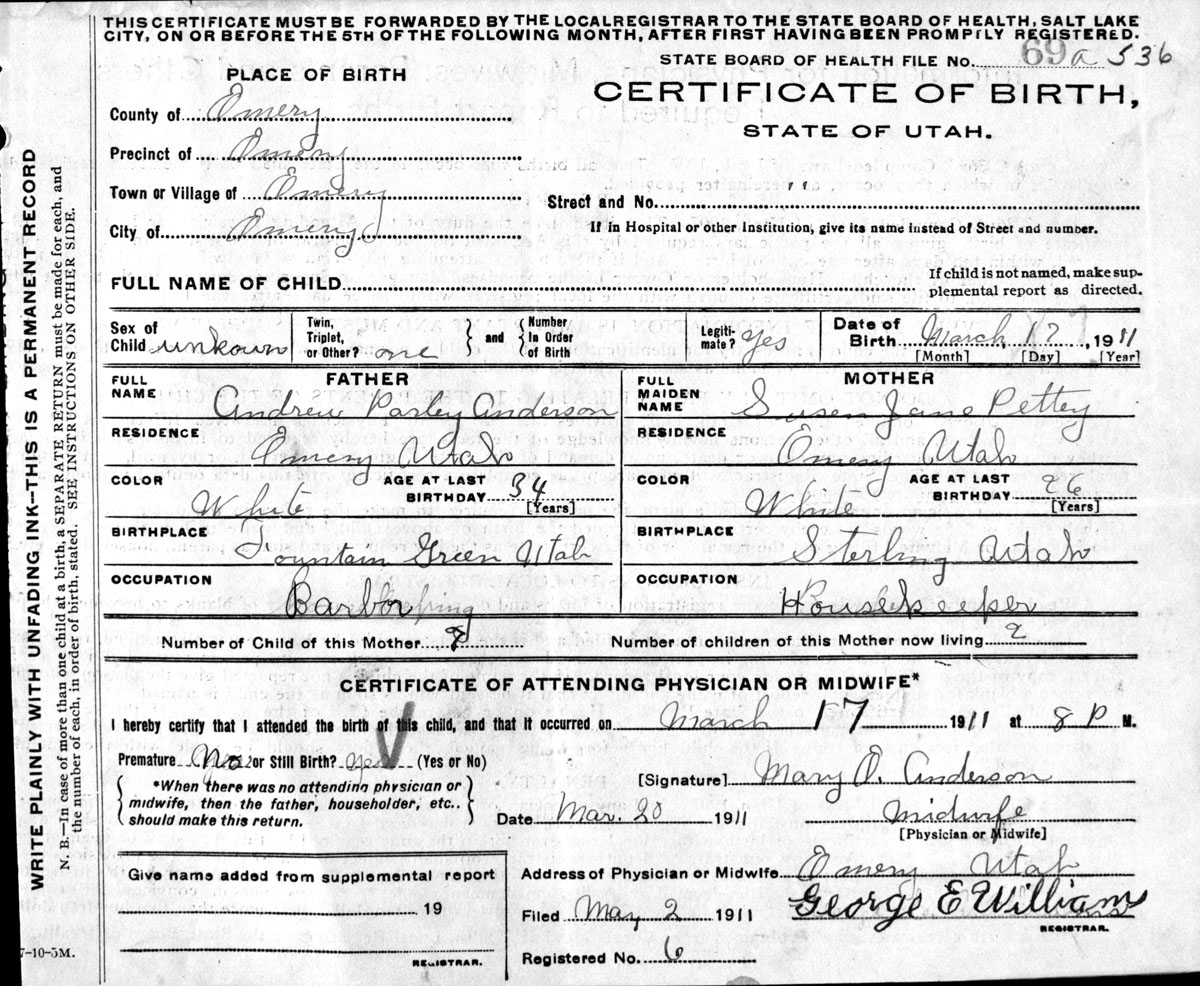 THIS CERTIFICATE MUST BE FORWARDED BY THE LOCAL REGISTRAR TO THE STATE BOARD OF HEALTH, SALT LAKE
CITY, ON OR BEFORE THE 5TH OF THE FOLLOWING MONTH, AFTER FIRST HAVING BEEN PROMPTLY REGISTERED.
STATE BOARD OF HEALTH FILE No. 69 a 536
PLACE OF BIRTH
CERTIFICATE OF BIRTH,
STATE OF UTAH.
County of Emery
Precinct of Emery
Town or Village of Emery
Street and No.
City of Emery
If in Hospital or other Institution, give its name instead of Street and number.
FULL NAME OF CHILD
If child is not named, make sup-
plemental report as directed.
Sex of Child unkown
Twin, Triplet, or Other? one
and
Number In Order of Birth
Legiti-mate? Yes
Date of Birth March 17, 1911
[Month] [Day] [Year]
FATHER
FULL NAME Andrew Parley Anderson
RESIDENCE Emery Utah
COLOR White
AGE AT LAST BIRTHDAY 34 [Years]
BIRTHPLACE Fountain Green Utah
OCCUPATION Barboring
MOTHER
FULL MAIDEN NAME Susen Jane Pettey
RESIDENCE Emery Utah
COLOR White
AGE AT LAST BIRTHDAY 26 [Years]
BIRTHPLACE Sterling Utah
OCCUPATION Housekeeper
Number of Child of this Mother
Number of children of this Mother now living 2
CERTIFICATE OF ATTENDING PHYSICIAN OR MIDWIFE*
I hereby certify that I attended the birth of this child, and that it occurred on March 17 1911 at 8 P M.
Premature No or Still Birth? yes (Yes or No)
*When there was no attending physician or
midwife, then the father, householder, etc.,
should make this return.
[Signature] Mary D. Anderson
Date Mar. 20 1911
Midwife
[Physician or Midwife]
Give name added from supplemental report
19
REGISTRAR.
Address of Physician or Midwife Emery Utah
Filed May 2 1911 George E Williams
REGISTRAR.
Registered No. 6
7-10-5M.
WRITE PLAINLY WITH UNFADING INK—THIS IS A PERMANENT RECORD
N. B.—In case of more than one child at a birth, a SEPARATE RETURN must be made for each, and
the number of each, in order of birth, stated. SEE INSTRUCTIONS ON OTHER SIDE.